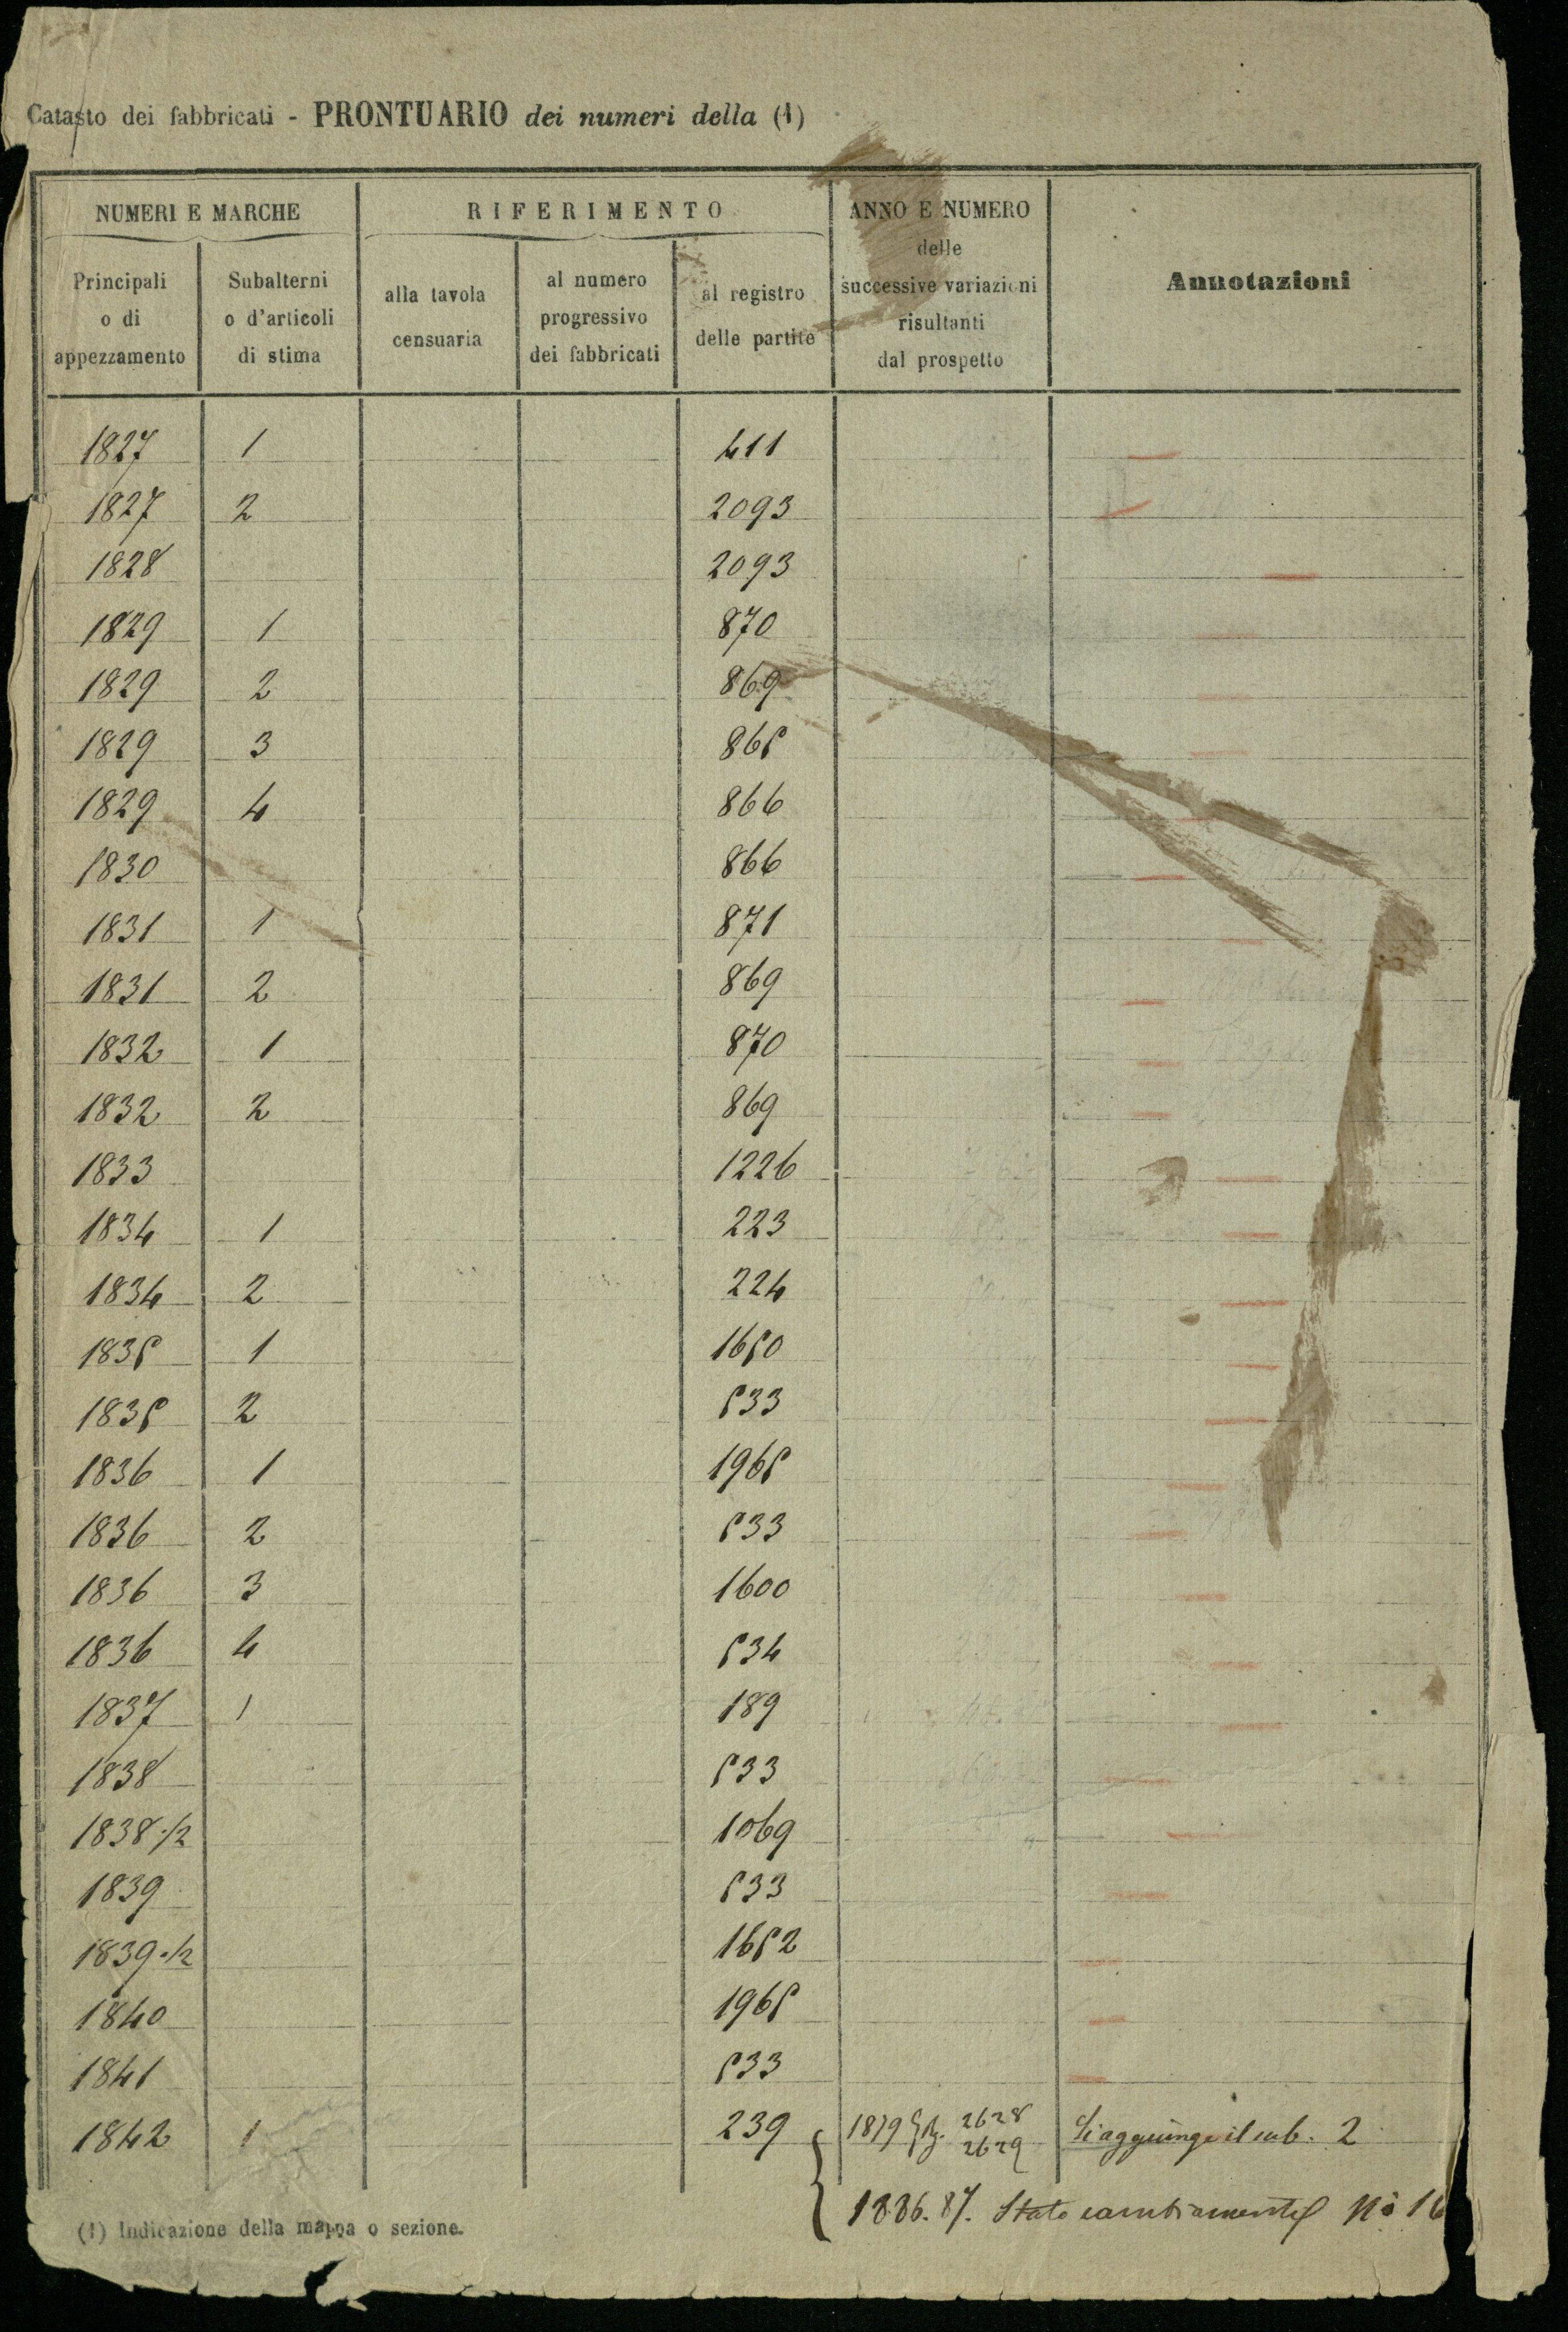 Catasto dei fabbricati - PRONTUARIO dei numeri della (1)
NUMERI E MARCHE
RIFERIMENTO
ANNO E NUMERO
delle
successive variazioni
risultanti
dal prospetto
Annotazioni
Principali
o di
appezzamento
Subalterni
o d'articoli
di stima
alla tavola
censuaria
al numero
progressivo
dei fabbricati
al registro
delle partite
1827 1 411
1827 2 2093
1828 2093
1829 1 870
1829 2 869
1829 3 865
1829 4 866
1830 866
1831 1 871
1831 2 869
1832 1 870
1832 2 869
1833 1226
1834 1 223
1834 2 224
1835 1 1650
1835 2 533
1836 1 1965
1836 2 533
1836 3 1600
1836 4 534
1837 1 189
1838 533
1838 1/2 1069
1839 533
1839 1/2 1652
1840 1965
1841 533
1842 1 239 1879 2628 Si aggiunge il sub. 2
2629
1886.87. Stato cambiamenti No 16
(1) Indicazione della mappa o sezione.